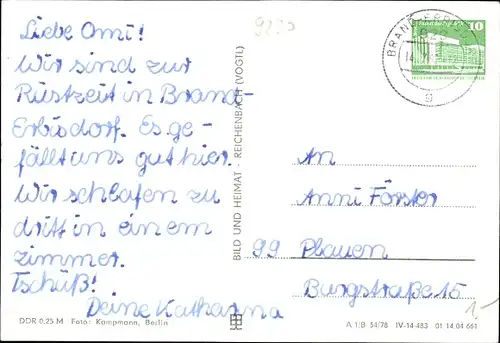 Liebe Omi!
Wir sind zur
Rüstzeit in Brand-
Erbisdorf. Es ge-
fällt uns gut hier.
Wir schlafen zu
dritt in einem
Zimmer.
Tschüß!
Deine Katharina
DDR 0,25 M Foto: Kampmann, Berlin
BILD UND HEIMAT · REICHENBACH (VOGTL)
10
BRAND-ERB
An
Anni Förster
99 Plauen
Burgstraße 15
1.-
A 1/B 54/78 IV-14-483 01 14 04 661